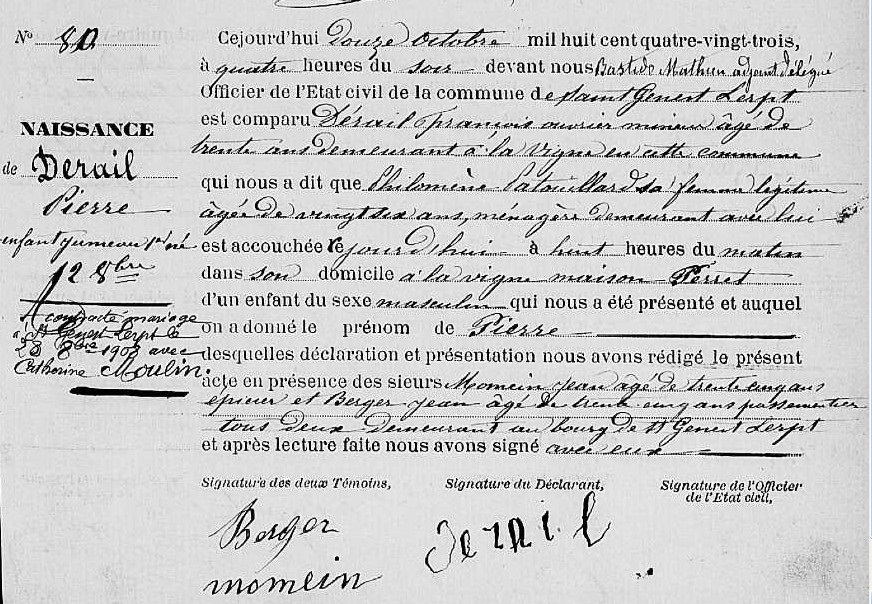 No 80
NAISSANCE
de Derail
Pierre
enfant jumeau 1er né
12 8bre
A contracté mariage
à St Genest Lerpt le
28 8bre 1908 avec
Catherine Moulin.
Cejourd'hui Douze Octobre mil huit cent quatre-vingt-trois,
à quatre heures du soir devant nous Bastide Mathieu adjoint délégué
Officier de l'Etat civil de la commune de Saint Genest Lerpt
est comparu Dérail François ouvrier mineur âgé de
trente ans demeurant à la vigne en cette commune
qui nous a dit que Philomène Patouillard sa femme légitime
âgée de vingt six ans, ménagère demeurant avec lui
est accouchée cejourd'hui à huit heures du matin
dans son domicile à la vigne maison Perret
d'un enfant du sexe masculin qui nous a été présenté et auquel
on a donné le prénom de Pierre
desquelles déclaration et présentation nous avons rédigé le présent
acte en présence des sieurs Momein Jean âgé de trente cinq ans
épicier et Berger Jean âgé de trente cinq ans passementier
tous deux demeurant au bourg de St Genest Lerpt
et après lecture faite nous avons signé avec eux
Signature des deux Témoins, Signature du Déclarant, Signature de l'Officier
de l'Etat civil,
Berger Derail
momein